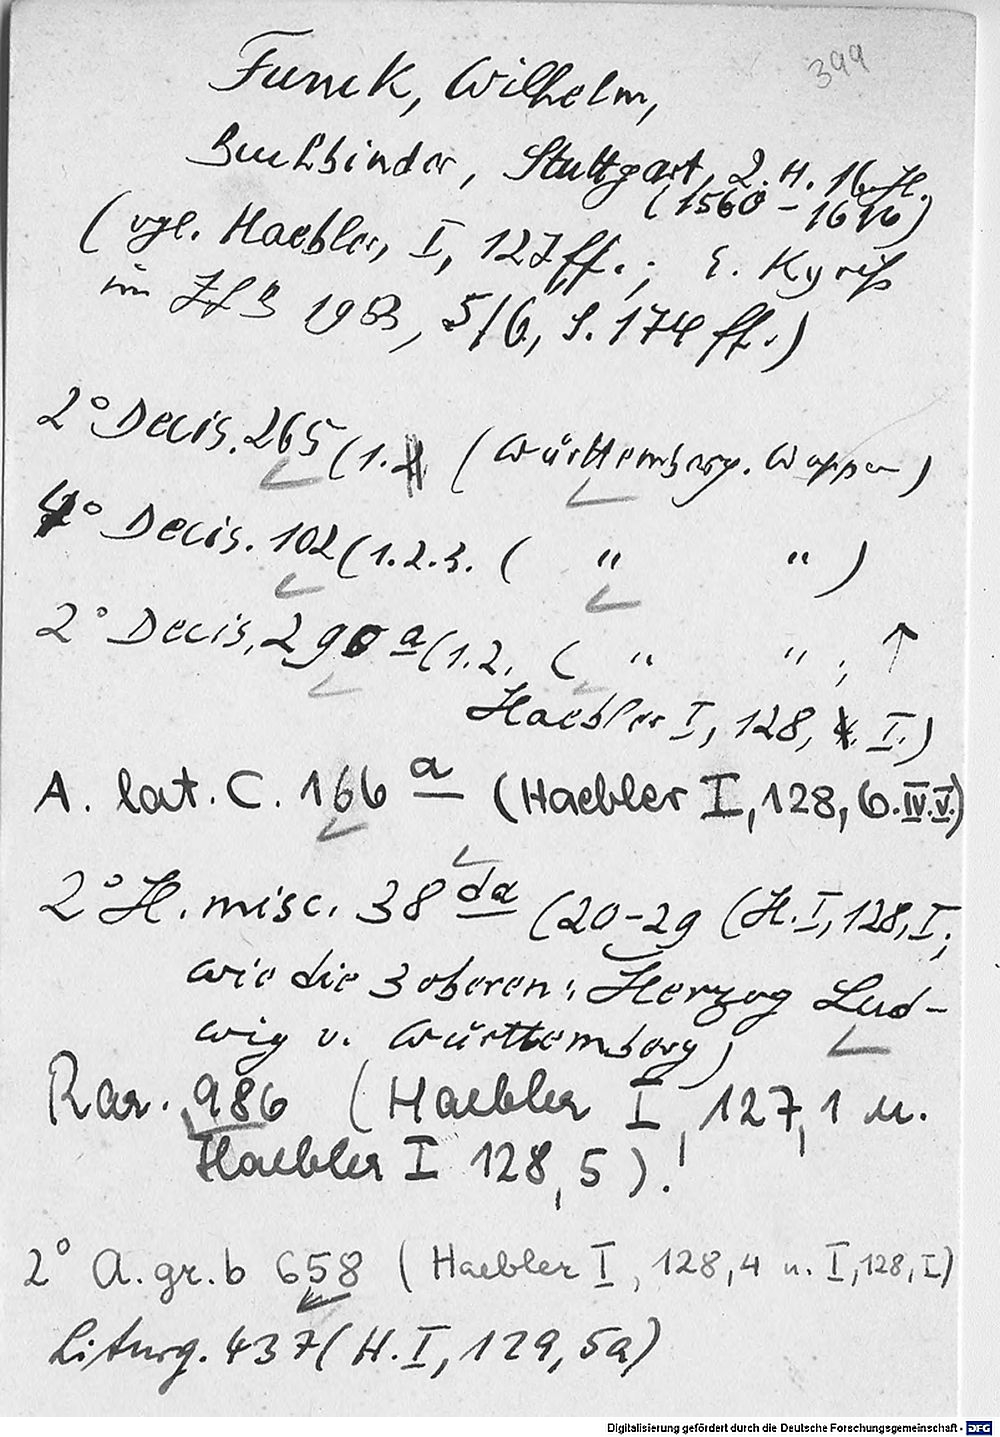 399
Funck, Wilhelm,
Buchbinder, Stuttgart, 2. H. 16. Jh.
(1560 - 1616)
(vgl. Haebler, I, 127ff.; E. Kyriß
im ZfB 1963, 5/6, S. 174 ff.)
2° Decis. 265 (1. (Württemberg. Wappen)
4° Decis. 102 (1.2.3. ( " " )
2° Decis. 290 a (1.2. ( " " ; ↑
Haebler I, 128, I.)
A. lat. C. 166 a (Haebler I, 128, 6.IV.V.)
2° H. misc. 38 da (20-29 (H. I, 128, I;
wie die 3 oberen: Herzog Lud-
wig v. Württemberg)
Rar. 986 (Haebler I, 127, 1 u.
Haebler I 128, 5).!
2° A. gr. b 658 (Haebler I, 128, 4 u. I, 128, I)
Liturg. 437 (H. I, 129, 5a)
Digitalisierung gefördert durch die Deutsche Forschungsgemeinschaft - DFG